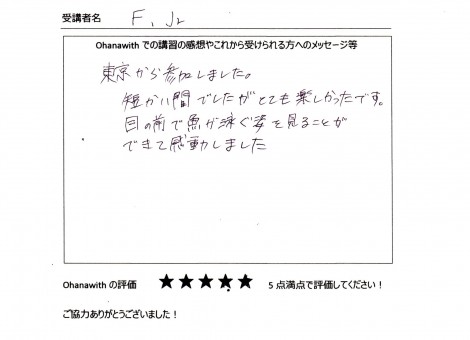 受講者名 F, Jr
Ohanawith での講習の感想やこれから受けられる方へのメッセージ等
東京から参加しました。
短かい間でしたがとても楽しかったです。
目の前で魚が泳ぐ姿を見ることが
できて感動しました
Ohanawith の評価 ★★★★★ 5 点満点で評価してください！
ご協力ありがとうございました！